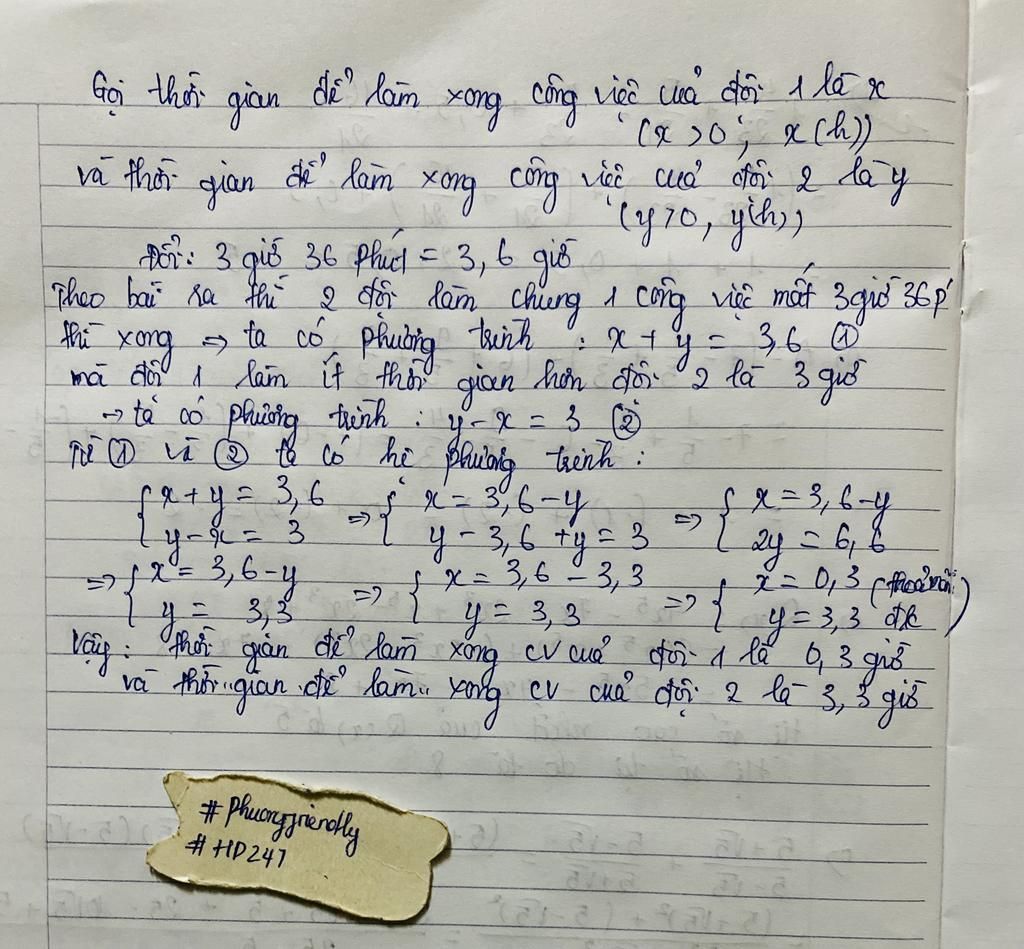 Gọi thời gian để làm xong công việc của đội 1 là x
(x > 0 ; x (h))
và thời gian để làm xong công việc của đội 2 là y
(y > 0, y (h))
Đổi: 3 giờ 36 phút = 3,6 giờ
Theo bài ra thì 2 đội làm chung 1 công việc mất 3 giờ 36 p'
thì xong => ta có phương trình : x + y = 3,6 ①
mà đội 1 làm ít thời gian hơn đội 2 là 3 giờ
→ ta có phương trình : y - x = 3 ②
Từ ① và ② ta có hệ phương trình :
{ x + y = 3,6 => { x = 3,6 - y => { x = 3,6 - y
y - x = 3 y - 3,6 + y = 3 2y = 6,6
=> { x = 3,6 - y => { x = 3,6 - 3,3 => { x = 0,3 (thoả mãn
y = 3,3 y = 3,3 y = 3,3 đk)
Vậy : thời gian để làm xong CV của đội 1 là 0,3 giờ
và thời gian để làm xong CV của đội 2 là 3,3 giờ
# Phuongfriendly
# HD247